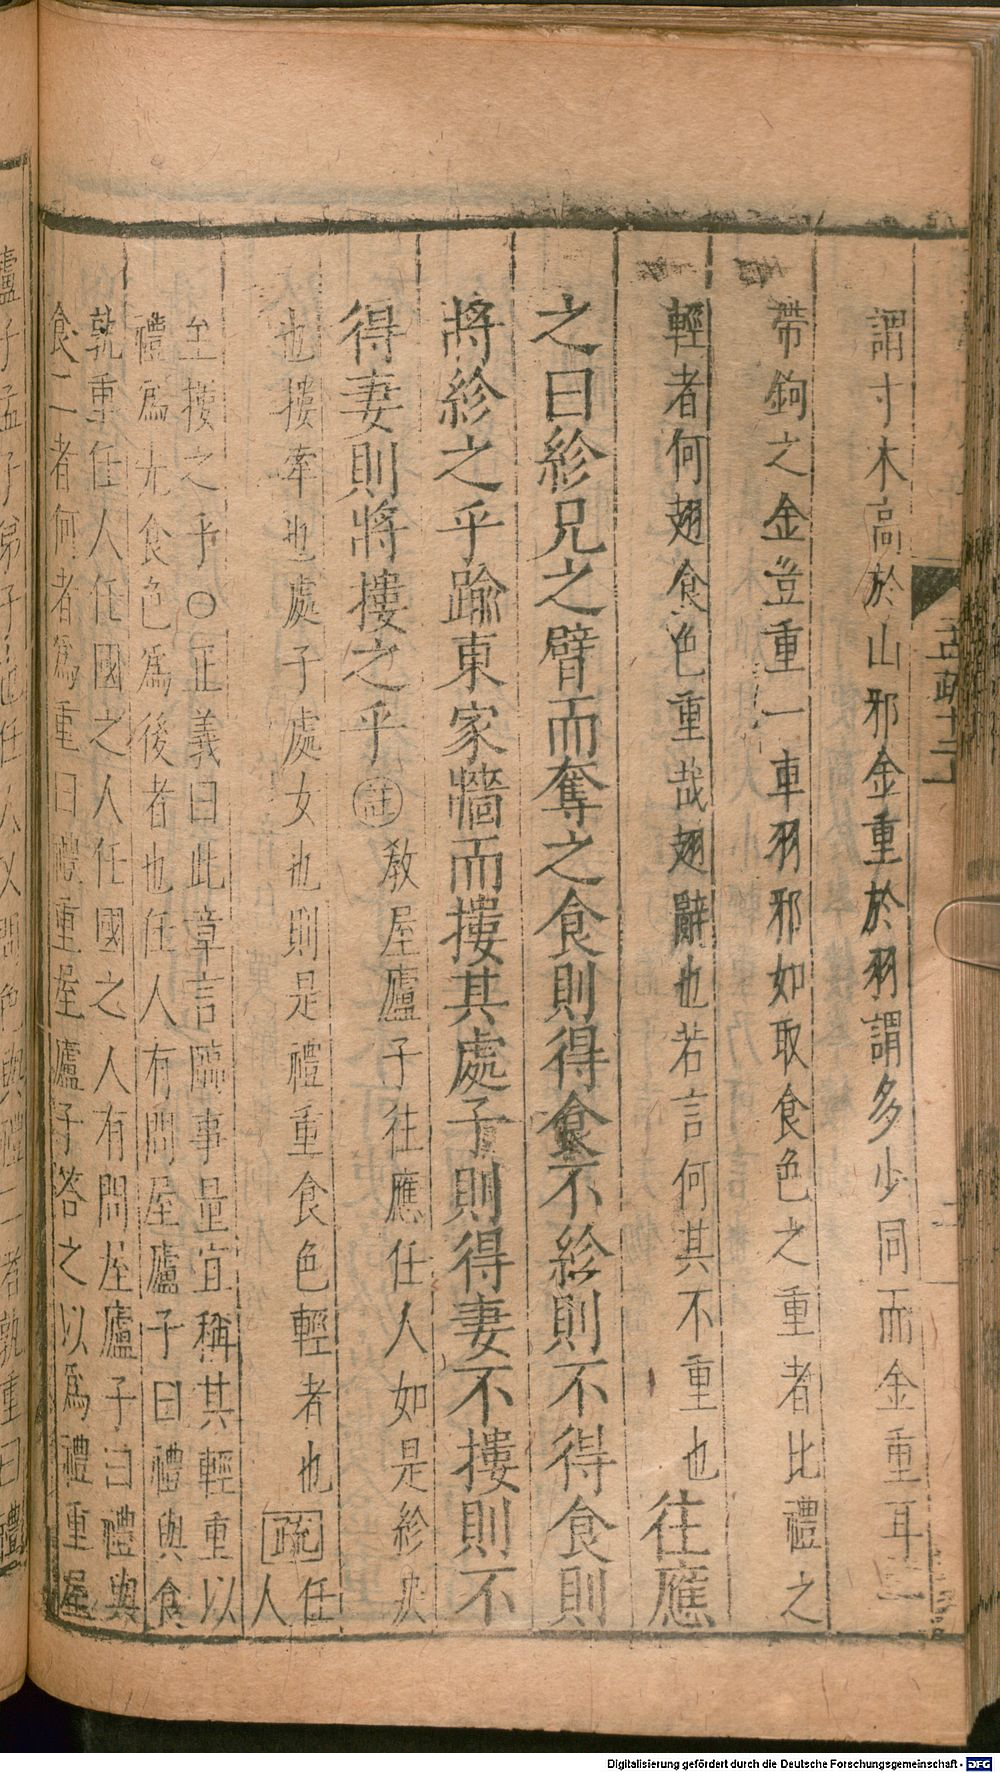 謂寸木高於山邪金重於羽謂多少同而金重耳一
帶鉤之金豈重一車羽邪如取食色之重者比禮之
輕者何翅食色重哉翅辭也若言何其不重也往應
之曰紾兄之臂而奪之食則得食不紾則不得食則
將紾之乎踰東家牆而摟其處子則得妻不摟則不
得妻則將摟之乎㊟教屋廬子往應任人如是紾戾
也摟牽也處子處女也則是禮重食色輕者也疏任人
至摟之乎〇正義曰此章言臨事量宜稱其輕重以
禮爲先食色爲後者也任人有問屋廬子曰禮與食
孰重任人任國之人任國之人有問屋廬子曰禮與
食二者何者爲重曰禮重屋廬子答之以爲禮重屋
廬子孟子弟子也任人又問色與禮二者孰重曰禮
孟疏十二上
二
Digitalisierung gefördert durch die Deutsche Forschungsgemeinschaft - DFG